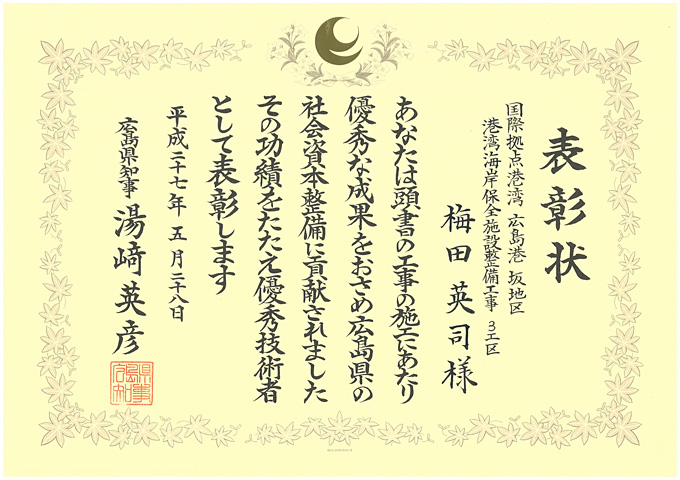 表彰状
国際拠点港湾 広島港 坂地区
港湾海岸保全施設整備工事 3工区
梅田英司様
あなたは頭書の工事の施工にあたり
優秀な成果をおさめ広島県の
社会資本整備に貢献されました
その功績をたたえ優秀技術者
として表彰します
平成二十七年 五月二十八日
広島県知事 湯﨑英彦